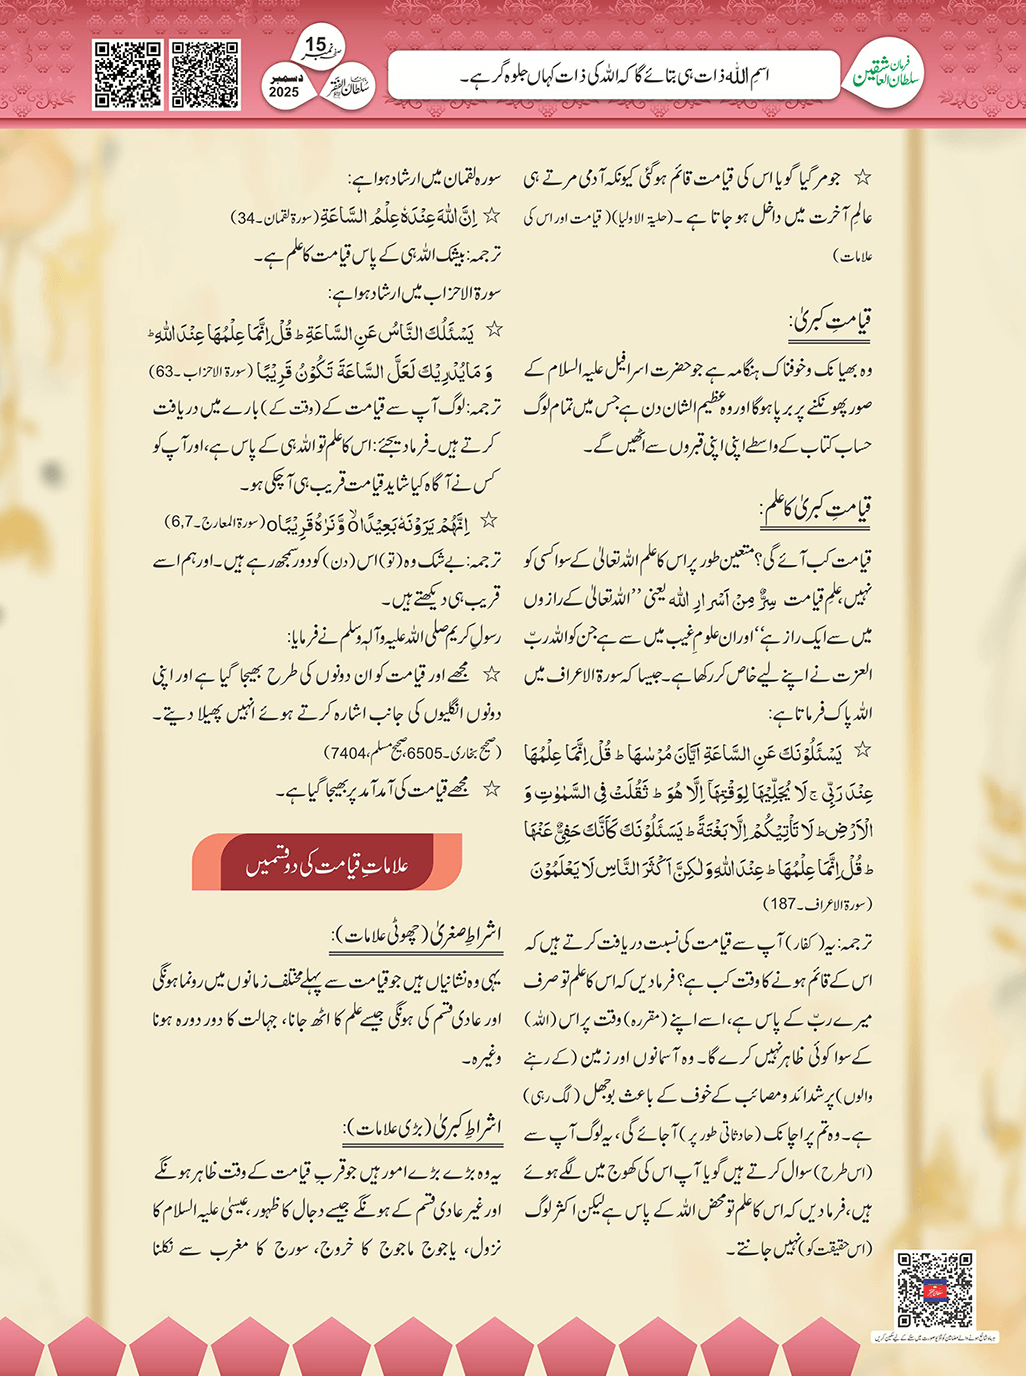 فرمان سلطان العاشقین
اسمِ اللہ ذات ہی بتائے گا کہ اللہ کی ذات کہاں جلوہ گر ہے۔
صفحہ نمبر 15
ماہنامہ سلطان الفقر
دسمبر 2025
☆ جو مر گیا گویا اس کی قیامت قائم ہوگئی کیونکہ آدمی مرتے ہی
عالمِ آخرت میں داخل ہو جاتا ہے۔ (حلیۃ الاولیا)( قیامت اور اس کی
علامات)
قیامتِ کبریٰ:
وہ بھیانک وخوفناک ہنگامہ ہے جو حضرت اسرافیل علیہ السلام کے
صور پھونکنے پر برپا ہوگا اور وہ عظیم الشان دن ہے جس میں تمام لوگ
حساب کتاب کے واسطے اپنی اپنی قبروں سے اٹھیں گے۔
قیامتِ کبریٰ کا علم:
قیامت کب آئے گی؟ متعین طور پر اس کا علم اللہ تعالیٰ کے سوا کسی کو
نہیں، علمِ قیامت سِرٌّ مِنْ اَسْرَارِ اللہ یعنی ’’اللہ تعالیٰ کے رازوں
میں سے ایک راز ہے‘‘ اور ان علومِ غیب میں سے ہے جن کو اللہ ربّ
العزت نے اپنے لیے خاص کر رکھا ہے۔ جیسا کہ سورۃ الاعراف میں
اللہ پاک فرماتا ہے:
☆ یَسْئَلُوْنَکَ عَنِ السَّاعَۃِ اَیَّانَ مُرْسٰھَا ط قُلْ اِنَّمَا عِلْمُھَا
عِنْدَ رَبِّیْ ج لَا یُجَلِّیْھَا لِوَقْتِھَآ اِلَّا ھُوَ ط ثَقُلَتْ فِی السَّمٰوٰتِ وَ
الْاَرْضِ ط لَا تَاْتِیْکُمْ اِلَّا بَغْتَۃً ط یَسْئَلُوْنَکَ کَاَنَّکَ حَفِیٌّ عَنْھَا
ط قُلْ اِنَّمَا عِلْمُھَا ط عِنْدَ اللّٰہِ وَلٰکِنَّ اَکْثَرَ النَّاسِ لَا یَعْلَمُوْنَ
(سورۃ الاعراف۔187)
ترجمہ: یہ( کفار) آپ سے قیامت کی نسبت دریافت کرتے ہیں کہ
اس کے قائم ہونے کا وقت کب ہے؟ فرما دیں کہ اس کا علم تو صرف
میرے ربّ کے پاس ہے، اسے اپنے (مقررہ) وقت پر اس (اللہ)
کے سوا کوئی ظاہر نہیں کرے گا۔ وہ آسمانوں اور زمین (کے رہنے
والوں) پر شدائد و مصائب کے خوف کے باعث بوجھل (لگ رہی)
ہے۔ وہ تم پر اچانک (حادثاتی طور پر) آجائے گی، یہ لوگ آپ سے
(اس طرح) سوال کرتے ہیں گویا آپ اس کی کھوج میں لگے ہوئے
ہیں، فرما دیں کہ اس کا علم تو محض اللہ کے پاس ہے لیکن اکثر لوگ
(اس حقیقت کو) نہیں جانتے۔
سورہ لقمان میں ارشاد ہوا ہے:
☆ اِنَّ اللّٰہَ عِنْدَہٗ عِلْمُ السَّاعَۃِ (سورۃ لقمان۔34)
ترجمہ: بیشک اللہ ہی کے پاس قیامت کا علم ہے۔
سورۃ الاحزاب میں ارشاد ہوا ہے:
☆ یَسْئَلُکَ النَّاسُ عَنِ السَّاعَۃِ ط قُلْ اِنَّمَا عِلْمُھَا عِنْدَ اللّٰہِ ط
وَ مَا یُدْرِیْکَ لَعَلَّ السَّاعَۃَ تَکُوْنُ قَرِیْبًا (سورۃ الاحزاب۔63)
ترجمہ: لوگ آپ سے قیامت کے (وقت کے) بارے میں دریافت
کرتے ہیں۔ فرما دیجئے: اس کا علم تو اللہ ہی کے پاس ہے، اور آپ کو
کس نے آگاہ کیا شاید قیامت قریب ہی آچکی ہو۔
☆ اِنَّھُمْ یَرَوْنَہٗ بَعِیْدًا o وَّ نَرٰہُ قَرِیْبًا o (سورۃ المعارج۔6,7)
ترجمہ: بے شک وہ (تو) اس (دن) کو دور سمجھ رہے ہیں۔ اور ہم اسے
قریب ہی دیکھتے ہیں۔
رسولِ کریم صلی اللہ علیہ وآلہٖ وسلم نے فرمایا:
☆ مجھے اور قیامت کو ان دونوں کی طرح بھیجا گیا ہے اور اپنی
دونوں انگلیوں کی جانب اشارہ کرتے ہوئے انہیں پھیلا دیتے۔
(صحیح بخاری۔6505، صحیح مسلم، 7404)
☆ مجھے قیامت کی آمد آمد پر بھیجا گیا ہے۔
علاماتِ قیامت کی دو قسمیں
اشراطِ صغریٰ (چھوٹی علامات):
یہی وہ نشانیاں ہیں جو قیامت سے پہلے مختلف زمانوں میں رونما ہونگی
اور عادی قسم کی ہونگی جیسے علم کا اٹھ جانا، جہالت کا دور دورہ ہونا
وغیرہ۔
اشراطِ کبریٰ (بڑی علامات):
یہ وہ بڑے بڑے امور ہیں جو قربِ قیامت کے وقت ظاہر ہونگے
اور غیر عادی قسم کے ہونگے جیسے دجال کا ظہور، عیسیٰ علیہ السلام کا
نزول، یاجوج ماجوج کا خروج، سورج کا مغرب سے نکلنا